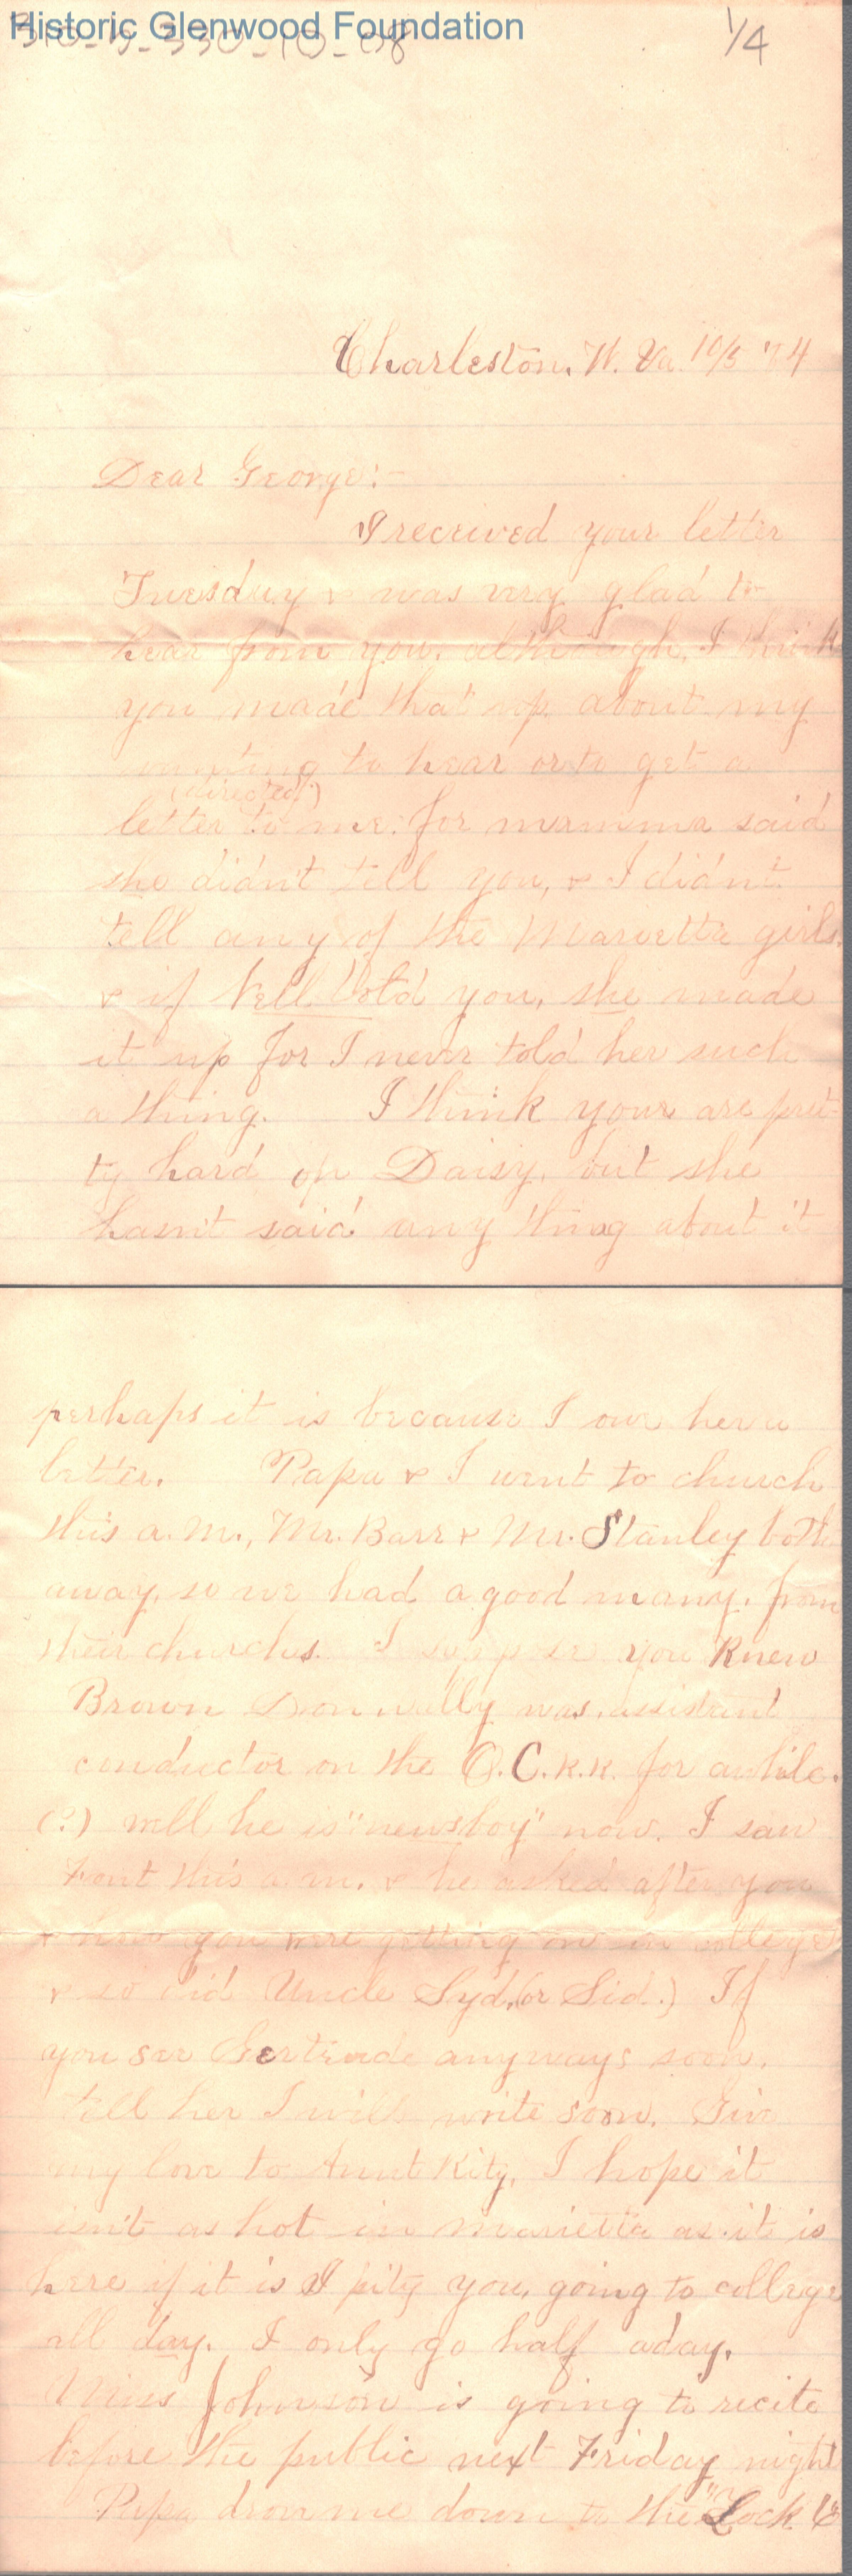 Historic Glenwood Foundation
310-5-330-10-08
1/4
Charleston, W. Va. 10/5 '84
Dear George:-
I received your letter
Tuesday & was very glad to
hear from you, although, I think
you made that up about my
wanting to hear or to get a
(directed)
letter to me: for mamma said
she didn't tell you, & I didn't
tell any of the Marietta girls,
& if Nell told you, she made
it up for I never told her such
a thing. I think your are pret-
ty hard on Daisy, but she
hasn't said any thing about it
perhaps it is because I owe her a
letter. Papa & I went to church
this a.m., Mr. Barr & Mr. Stanley both
away, so we had a good many, from
their churches. I suppose you knew
Brown Donnally was assistant
conductor on the O.C.R.R. for awhile.
(?) well he is "newsboy" now. I saw
Font this a.m. & he asked after you
& how you were getting on in college
& so did Uncle Syd, (or Sid.) If
you see Gertrude anyways soon,
tell her I will write soon. Give
my love to Aunt Kity, I hope it
isn't as hot in Marietta as it is
here if it is I pity you, going to college
all day. I only go half aday.
Miss Johnson is going to recite
before the public next Friday night
Papa drove me down to the Lock